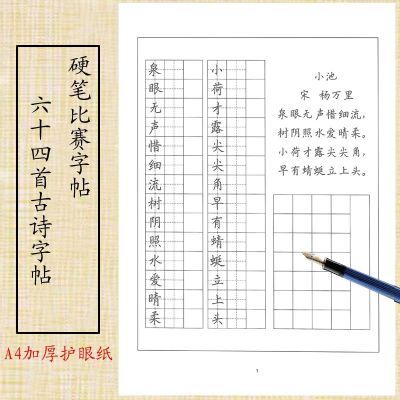 硬笔比赛字帖
六十四首古诗字帖
A4加厚护眼纸
泉眼无声惜细流树阴照水爱晴柔
小荷才露尖尖角早有蜻蜓立上头
小池
宋 杨万里
泉眼无声惜细流,
树阴照水爱晴柔。
小荷才露尖尖角,
早有蜻蜓立上头。
1